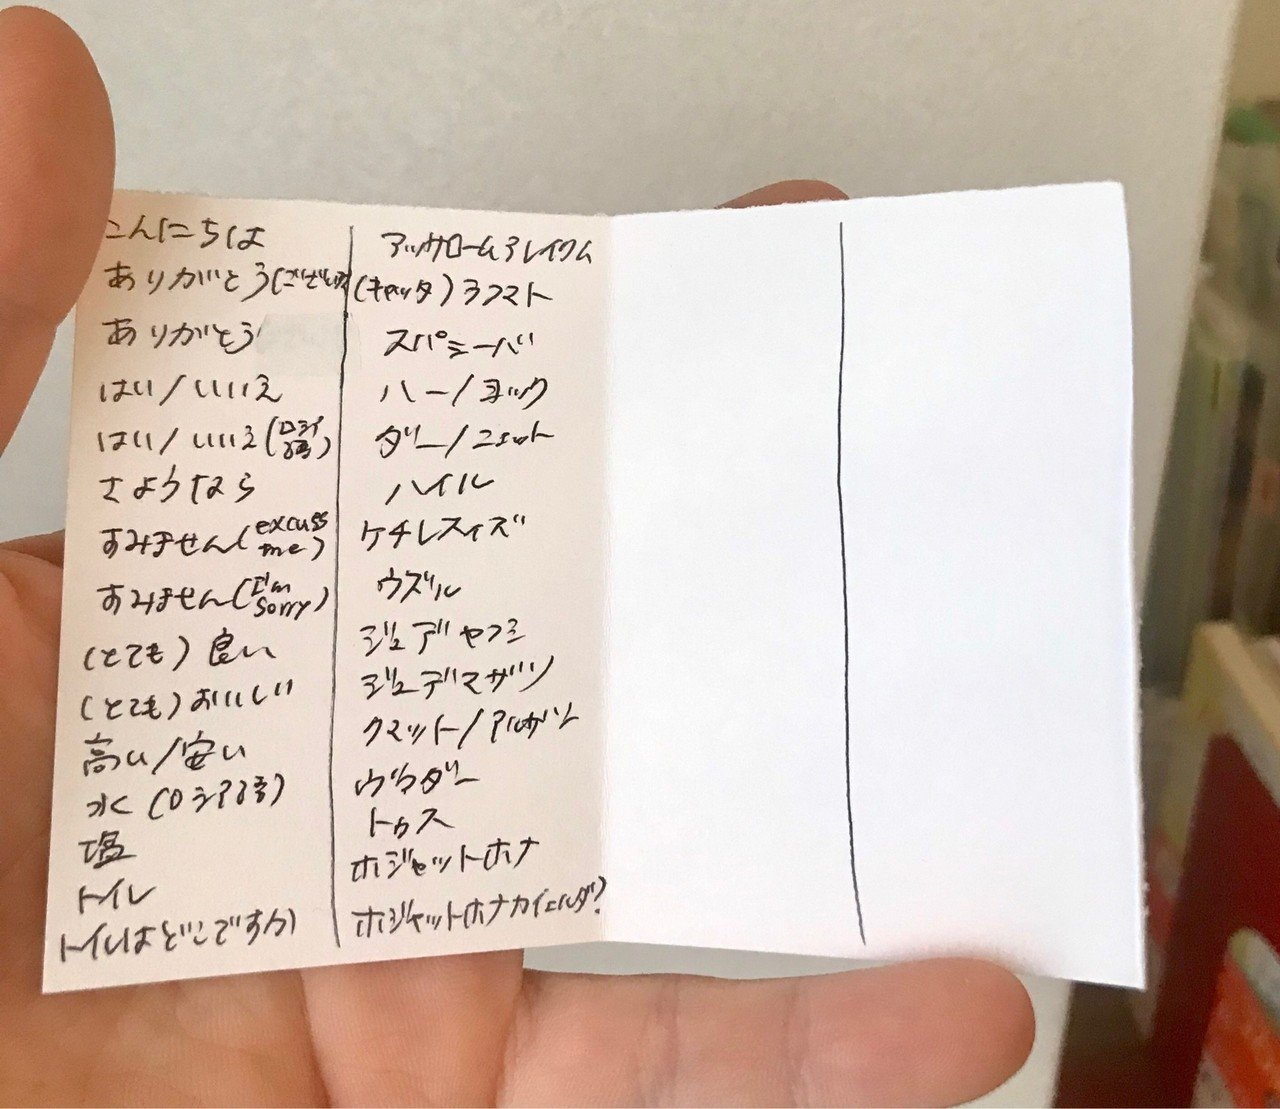 こんにちは
アッサロームアレイクム
ありがとう(ございます)
(キャッタ)ラフマト
ありがとう
スパシーバ
はい/いいえ
ハー/ヨック
はい/いいえ(ロシア語)
ダー/ニェット
さようなら
ハイル
すみません(excuse me)
ケチレスィズ
すみません(I'm sorry)
ウズル
(とても)良い
ジュデヤフシ
(とても)おいしい
ジュデマザリ
高い/安い
クマット/アルザン
水(ロシア語)
ヴァダー
塩
トゥス
トイレ
ホジャットホナ
トイレはどこですか
ホジャットホナカイェルダ?